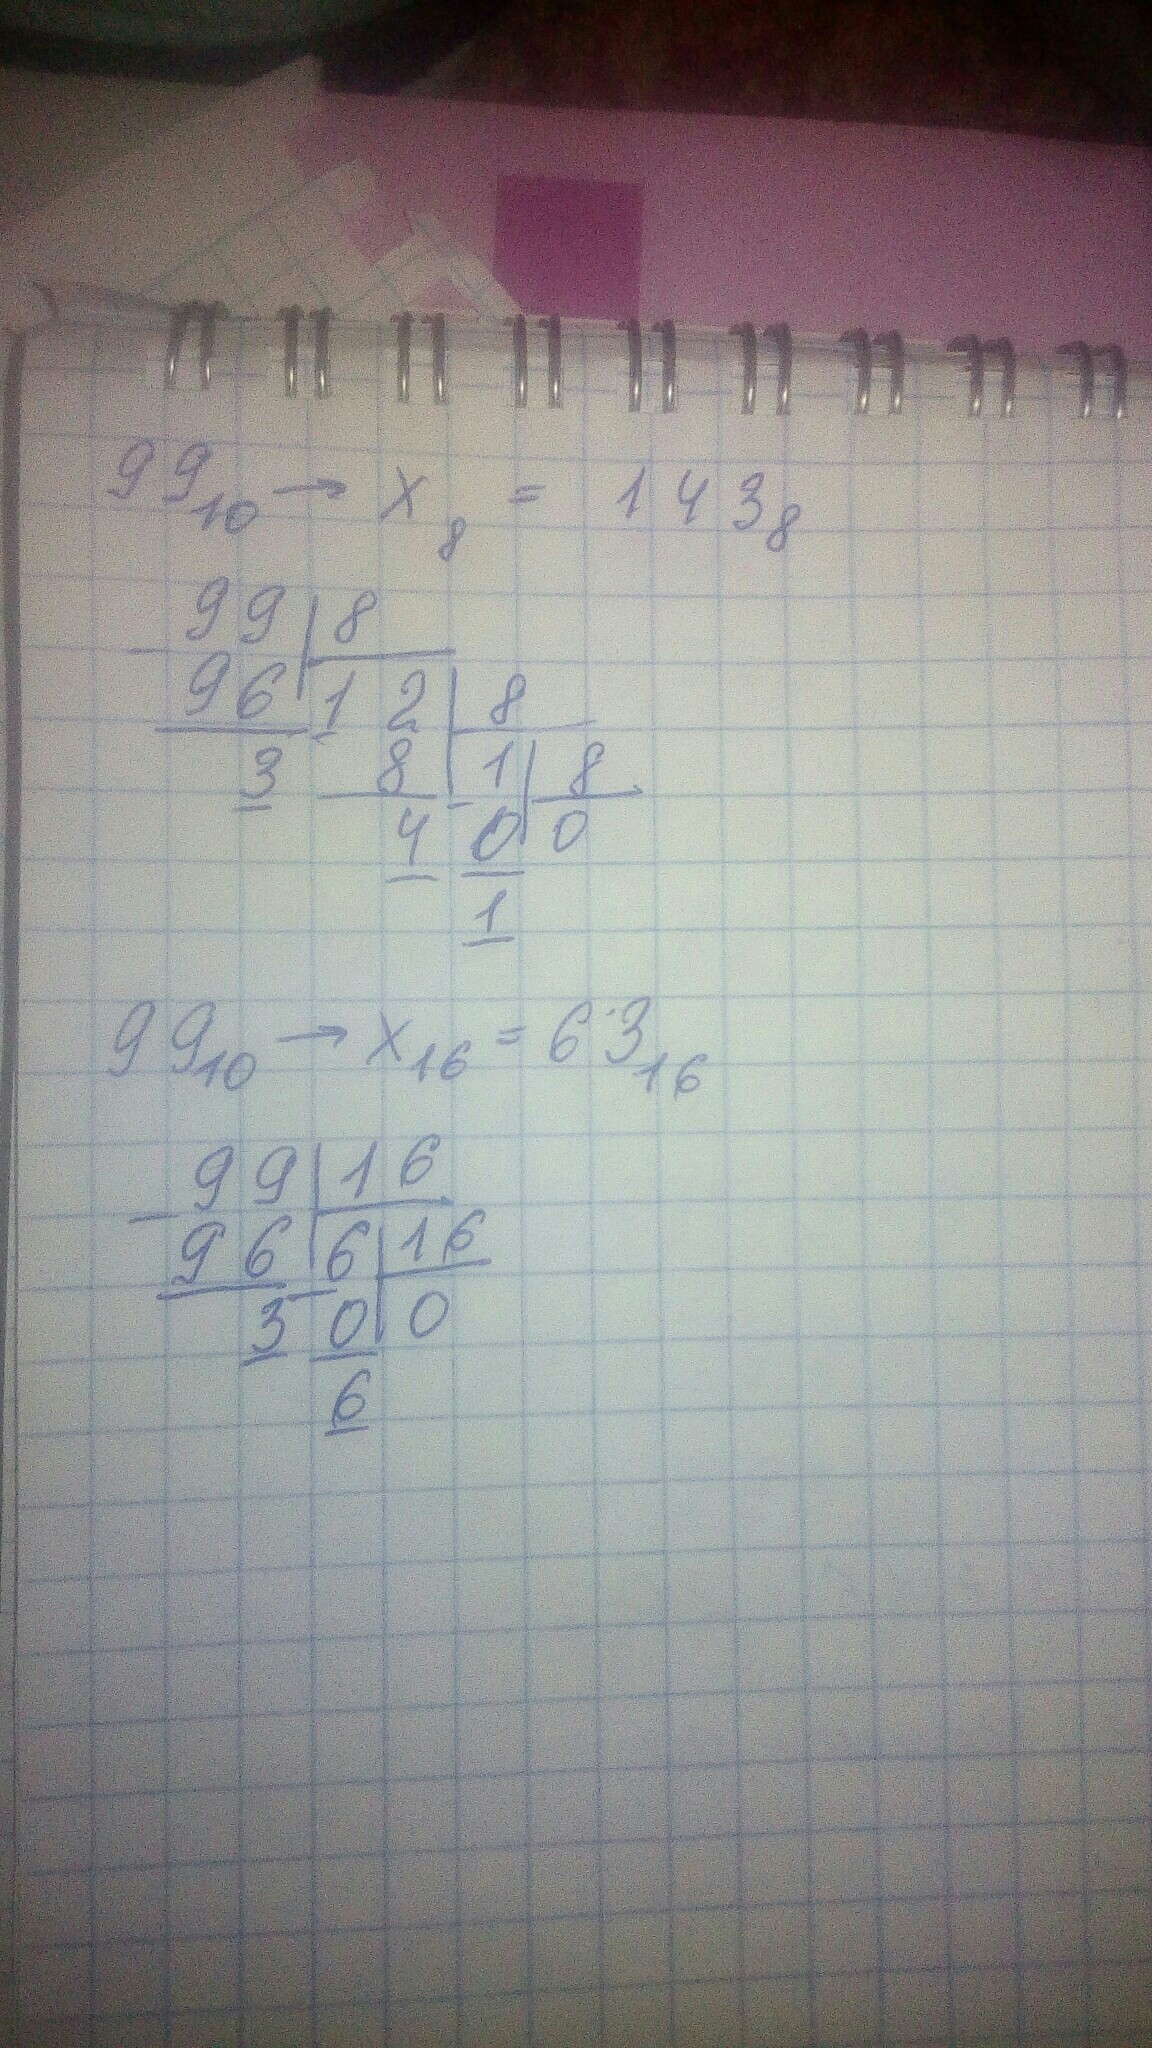 99₁₀ → x₈ = 143₈
99 | 8
− 96 | 12 | 8
3 − 8 | 1 | 8
4 − 0 | 0
1
99₁₀ → x₁₆ = 63₁₆
99 | 16
− 96 | 6 | 16
3 − 0 | 0
6